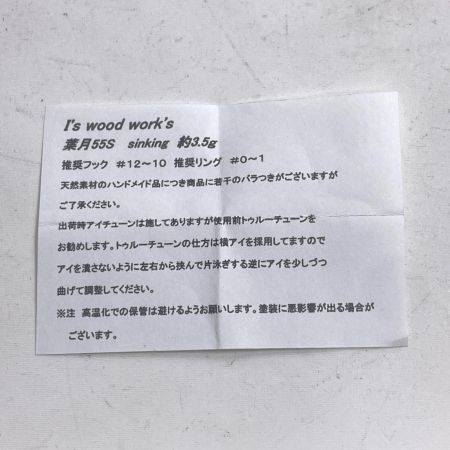 I's wood work's
葉月55S sinking 約3.5g
推奨フック #12～10 推奨リング #0～1
天然素材のハンドメイド品につき商品に若干のバラつきがございますが
ご了承ください。
出荷時アイチューンは施してありますが使用前トゥルーチューンを
お勧めします。トゥルーチューンの仕方は横アイを採用してますので
アイを潰さないように左右から挟んで片泳ぎする逆にアイを少しづつ
曲げて調整してください。
※注 高温化での保管は避けるようお願いします。塗装に悪影響が出る場合が
ございます。